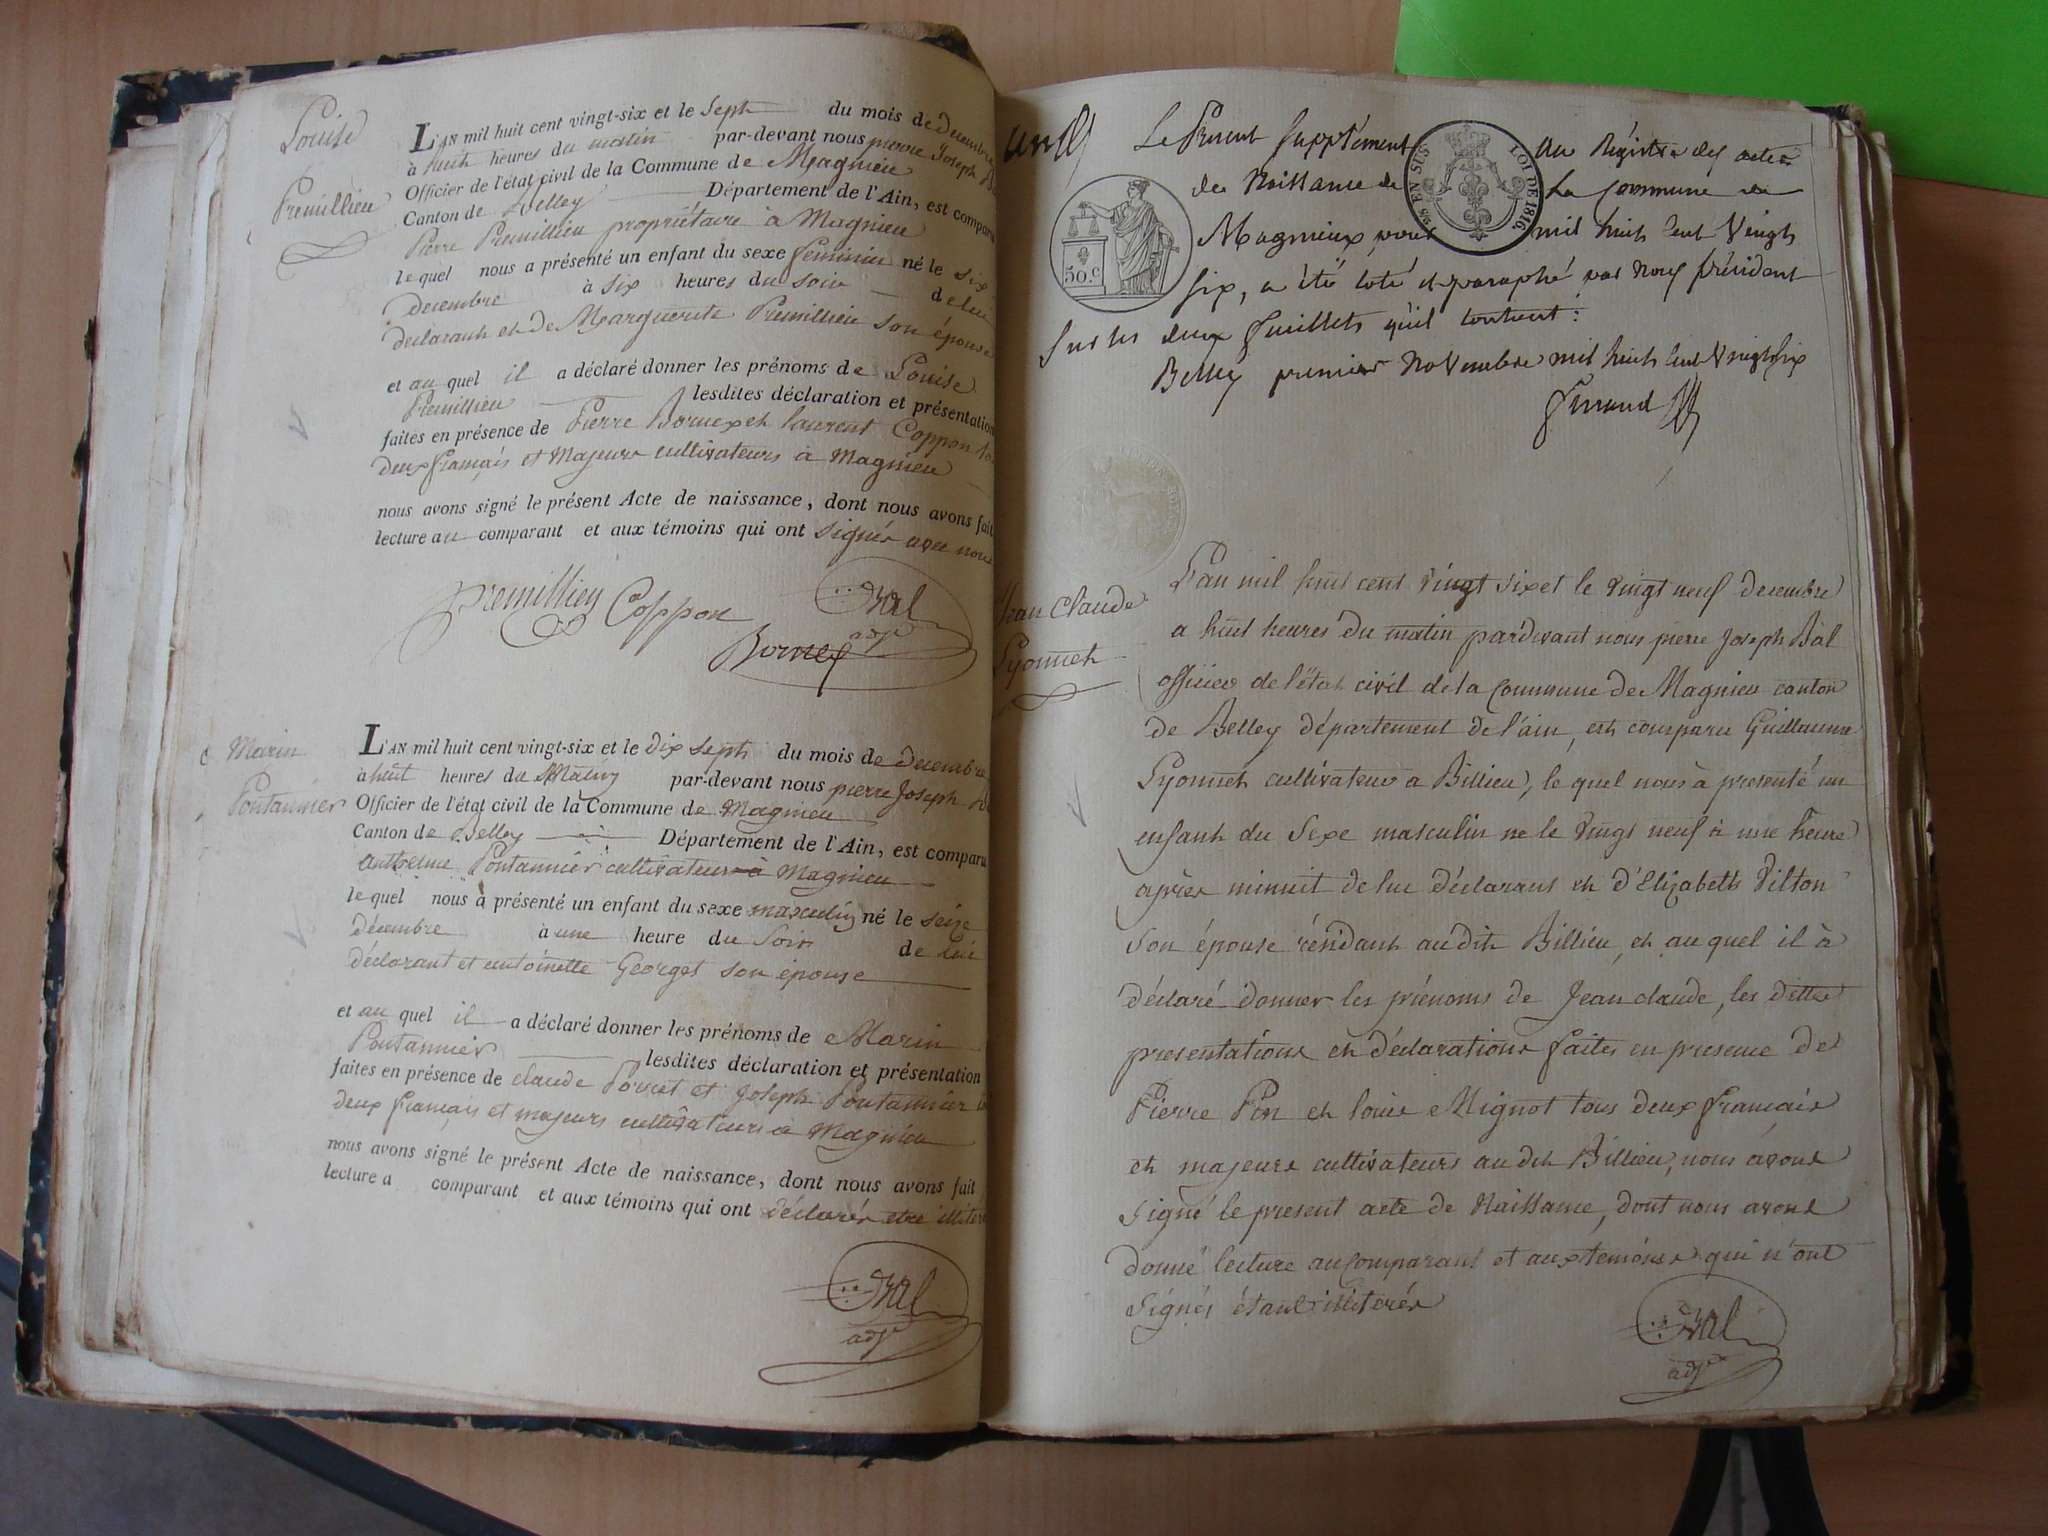 Louise
Premillieu
L'AN mil huit cent vingt-six et le Sept du mois de Decembre
à huit heures du matin par-devant nous pierre Joseph
Officier de l'état civil de la Commune de Magnieu
Canton de Belley Département de l'Ain, est comparu
Pierre Premillieu propriétaire à Magnieu
le quel nous a présenté un enfant du sexe feminin né le six
Decembre à six heures du soir de lui
declarant et de Marguerite Premillieu son épouse
et au quel il a déclaré donner les prénoms de Louise
Premillieu lesdites déclaration et présentation
faites en présence de Pierre Bornex et laurent Coppon
deux français et Majeurs cultivateurs à Magnieu
nous avons signé le présent Acte de naissance, dont nous avons fait
lecture au comparant et aux témoins qui ont signés avec nous
Premillieu Coppon Bal
Bornex adjt
Marin
Pontannier
L'AN mil huit cent vingt-six et le Dix Sept du mois de decembre
à huit heures du Matin par-devant nous pierre Joseph
Officier de l'état civil de la Commune de Magnieu
Canton de Belley Département de l'Ain, est comparu
anthelme Pontannier cultivateur à Magnieu
le quel nous à présenté un enfant du sexe masculin né le seize
décembre à une heure du Soir de lui
déclarant et antoinette Georget son épouse
et au quel il a déclaré donner les prénoms de Marin
Pontannier lesdites déclaration et présentation
faites en présence de claude et Joseph Pontannier
deux français et majeurs cultivateurs à Magnieu
nous avons signé le présent Acte de naissance, dont nous avons fait
lecture a comparant et aux témoins qui ont déclarés etre
Bal
adjt
Le Present Supplément au Régistre des actes
de Naissance de la Commune de
Magnieux pour mil huit Cent Vingt
Six, a été coté et paraphé par Nous président
Sur les deux feuillets qu'il contient:
Belley premier Novembre mil huit Cent Vingt Six
Ferrand
95 EN SUS
LOI DE 1816
50.c
Jean Claude
Pyonnet
L'an mil huit cent vingt six et le vingt neuf decembre
a huit heures du matin pardevant nous pierre Joseph Bal
officier de l'état civil de la Commune de Magnieu canton
de Belley département de l'ain, est comparu Guillaume
Pyonnet cultivateur a Billieu, le quel nous à presenté un
enfant du Sexe masculin ne le vingt neuf à une heure
après minuit de lui déclarant et d'Elizabeth Vilton
son épouse résidant au dit Billieu, et au quel il à
déclaré donner les prénoms de Jean claude, les dittes
presentations et déclarations faites en presence de
Pierre Pin et louis Mignot tous deux français
et majeurs cultivateurs au dit Billieu, nous avons
Signé le present acte de Naissance, dont nous avons
donné lecture au Comparant et aux temoins qui n'ont
Signés étant illiterés
Bal
adjt